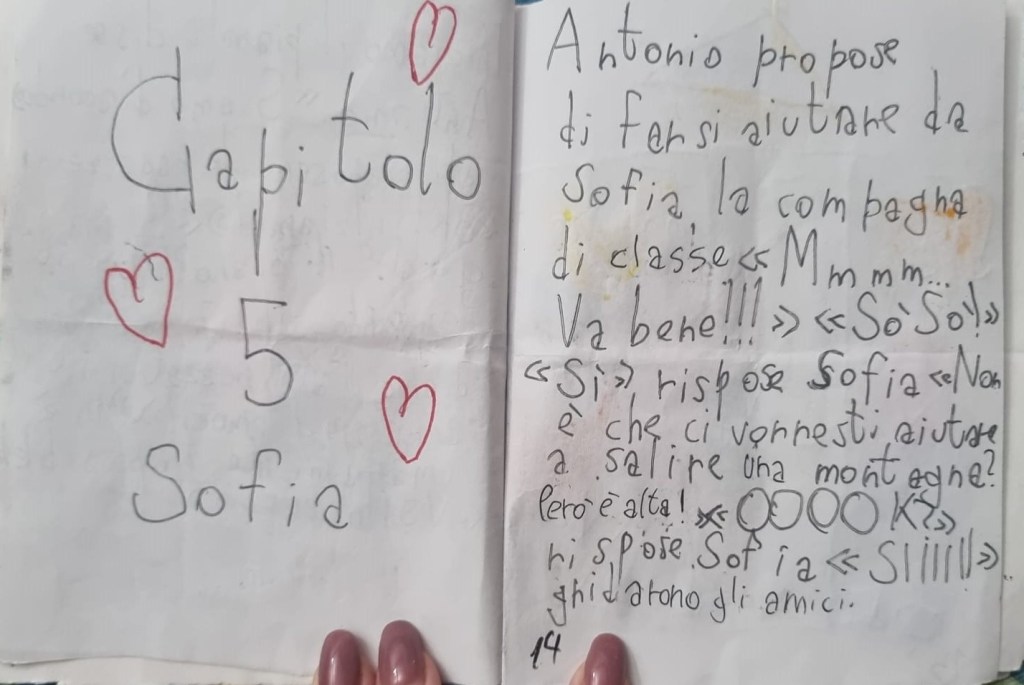 Capitolo
5
Sofia
Antonio propose
di farsi aiutare da
Sofia, la compagna
di classe «Mmmm...
Va bene!!!» «So'So'!»
«Sì» rispose Sofia «Non
è che ci vorresti aiutare
a salire una montagne?
Però è alta! «OOOOK?»
rispose Sofia «SIIIIII»
ghidarono gli amici.
14